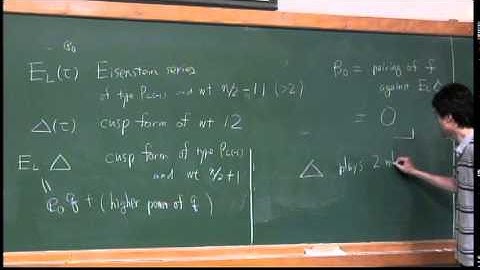 e₀
E_L(τ) Eisenstein series
of type ρ_L(-1) and wt n/2 - 11 (>2)
Δ(τ) cusp form of wt 12
E_L Δ cusp form of type ρ_L(-1)
and wt n/2+1
||
e₀ q + (higher power of q)
B₀ = pairing of f
against E_L Δ
= 0
Δ plays 2